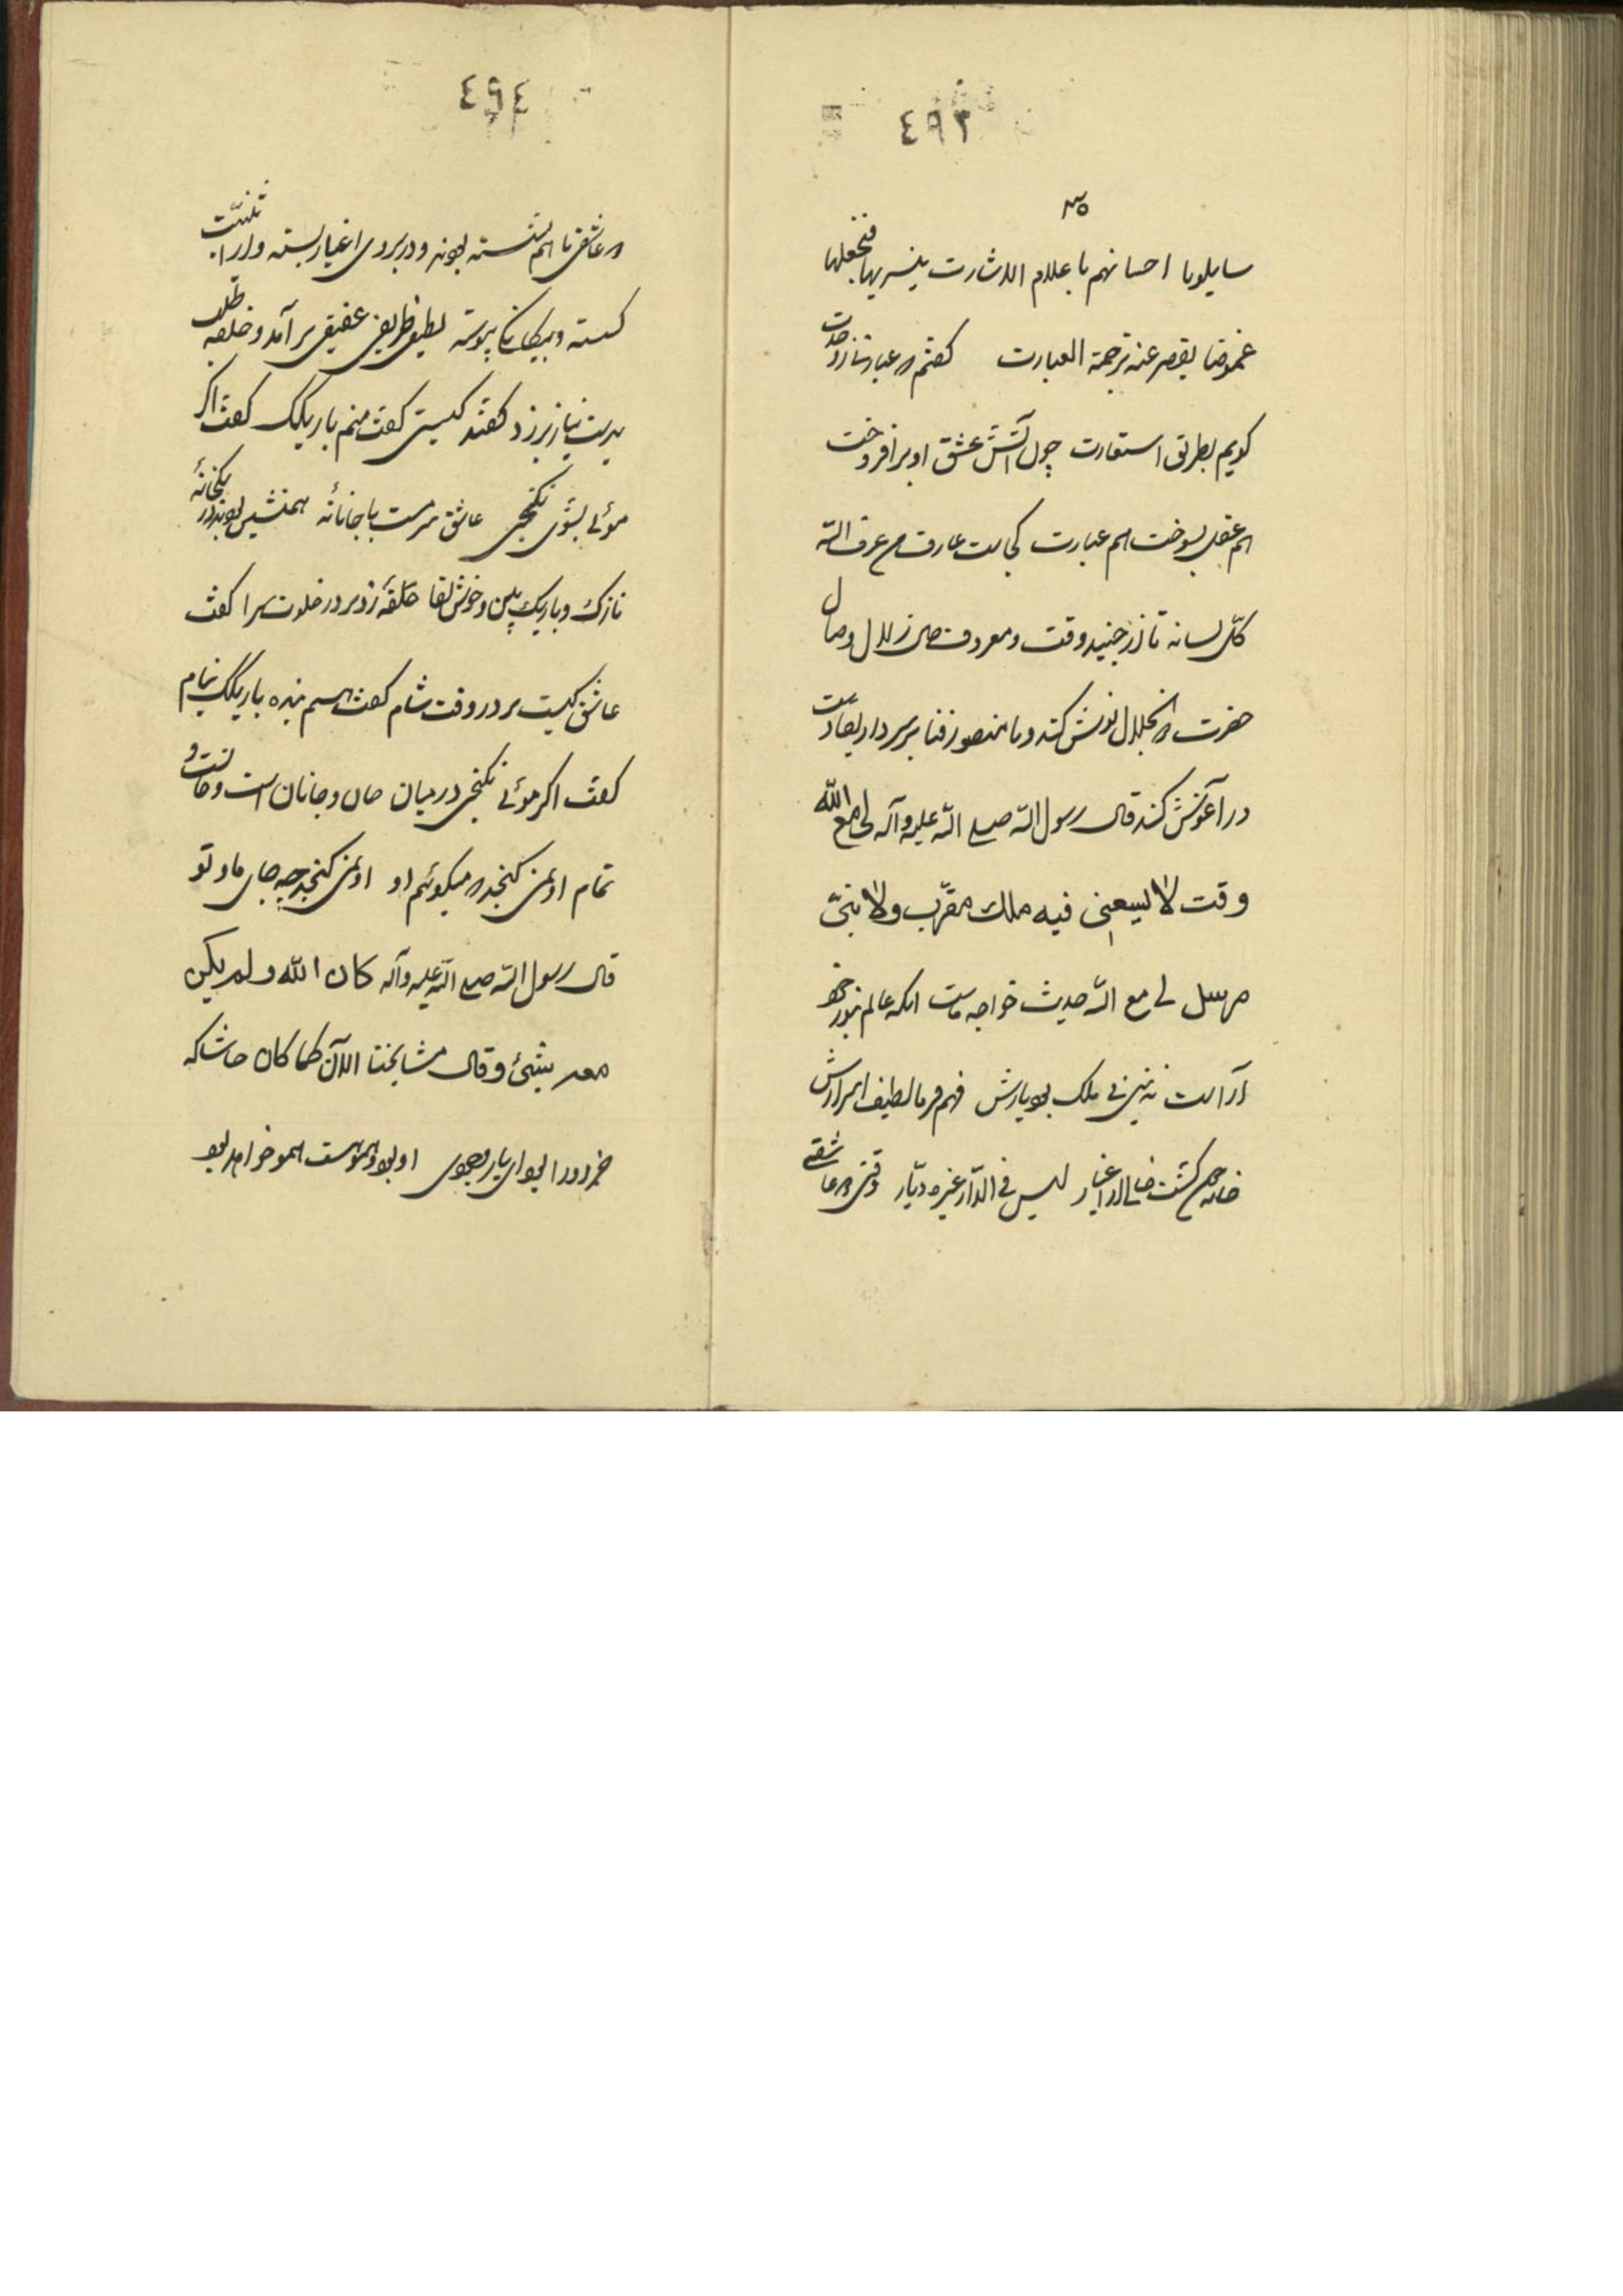 ٤٩٣
سایلونا احسانهم باعلام الاشارت یفسریها فنجعلها
غموضا یقصر عنه ترجمة العبارت گفتم که عبارتی از وحدت
گویم بطریق استعارت چون آتش عشق او برافروخت
هم عقل بسوخت هم عبارت کجاست عارف من عرف الله
کلّ لسانه تا از جنید وقت و معروف زلال وصال
حضرت نوش کند و با منصور فنا بر سر دار بقا دست
در آغوش کند قال رسول الله صلی الله علیه وآله لی مع الله
وقت لا لیسعنی فیه ملك مقرّب ولا نبیّ
مرسل لی مع الله حدیث خواجه ماست آنکه عالم بنور خود
آراست نه نبی نی ملک بود یارش فهم فرما لطیف اسرارش
خانه گشت خالی از اغیار لیس فی الدّار غیره دیّار وقتی که عاشقی
٤٩٤
با هم نشسته بودند و در بروی اغیار بسته و از اثنینیّت
گسسته و بیگانگی پیوسته لطیفی ظریفی عفیفی بر آمد و حلقه طلب
بدست نیاز بر زد گفتند کیستی گفت منم باریکک گفت اگر
موئی بشوی نگنجی عاشق سرمست با جانانه همنشین بودند در یکخانهٔ
نازک و باریک بین و خوش لقا حلقهٔ زد بر در خلوت سرا گفت
عاشق کیست بر در وقت شام گفت هستم بنده باریکک بنام
گفت اگر موئی نگنجی در میان جان و جانان است و جانست و
تمام او بمن گنجد که میگویم او او بمن گنجد چه جای ما و تو
قال رسول الله صلی الله علیه وآله کان الله ولم یکن
معه شیئ وقال مشایخنا الآن کما کان حاشا که
خرد و را بود ای یار بجوی او بود و هموست همو خواهد بود